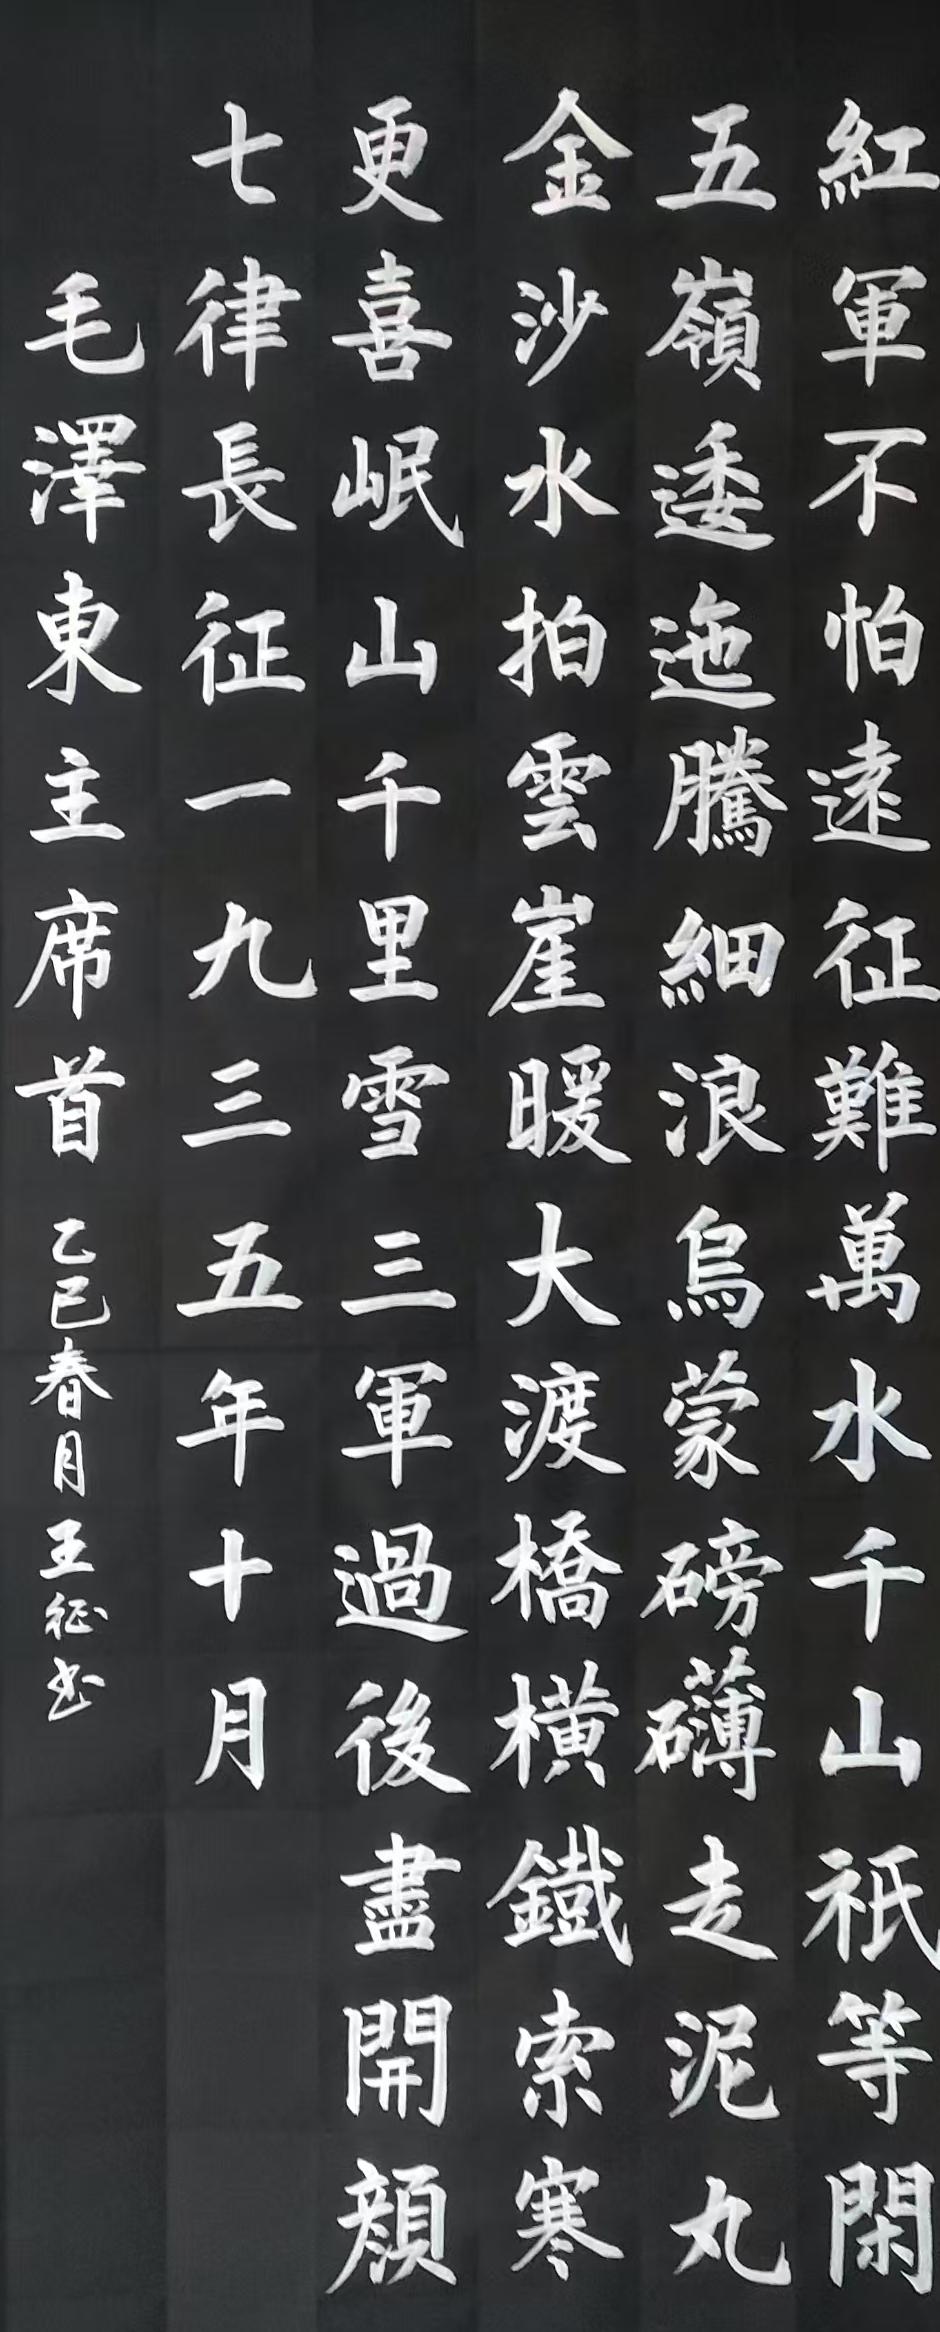 紅軍不怕遠征難萬水千山祇等閑
五嶺逶迤騰細浪烏蒙磅礴走泥丸
金沙水拍雲崖暖大渡橋橫鐵索寒
更喜岷山千里雪三軍過後盡開顔
七律長征一九三五年十月
毛澤東主席首乙巳春月王征书